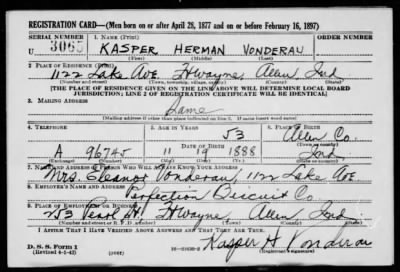 REGISTRATION CARD—(Men born on or after April 28, 1877 and on or before February 16, 1897)
SERIAL NUMBER 1. NAME (Print) ORDER NUMBER
U 3065 KASPER HERMAN VONDERAU
(First) (Middle) (Last)
2. PLACE OF RESIDENCE (Print)
1122 Lake Ave Ft Wayne, Allen Ind
(Number and street) (Town, township, village, or city) (County) (State)
[THE PLACE OF RESIDENCE GIVEN ON THE LINE ABOVE WILL DETERMINE LOCAL BOARD
JURISDICTION; LINE 2 OF REGISTRATION CERTIFICATE WILL BE IDENTICAL]
3. MAILING ADDRESS
Same
(Mailing address if other than place indicated on line 2. If same insert word same)
4. TELEPHONE 5. AGE IN YEARS 6. PLACE OF BIRTH
53 Allen Co.
(Town or county)
A 96745 11 19 1888 Ind
(Exchange) (Number) (Mo.) (Day) (Yr.) (State or country)
7. NAME AND ADDRESS OF PERSON WHO WILL ALWAYS KNOW YOUR ADDRESS
Mrs. Eleanor Vonderau, 1122 Lake Ave
8. EMPLOYER'S NAME AND ADDRESS
Perfection Biscuit Co.
9. PLACE OF EMPLOYMENT OR BUSINESS
253 Pearl St. Ft Wayne, Allen, Ind.
(Number and street or R. F. D. number) (Town) (County) (State)
I AFFIRM THAT I HAVE VERIFIED ABOVE ANSWERS AND THAT THEY ARE TRUE.
Kasper H Vonderau
D. S. S. Form 1
(Revised 4-1-42) (over) (Registrant's signature)